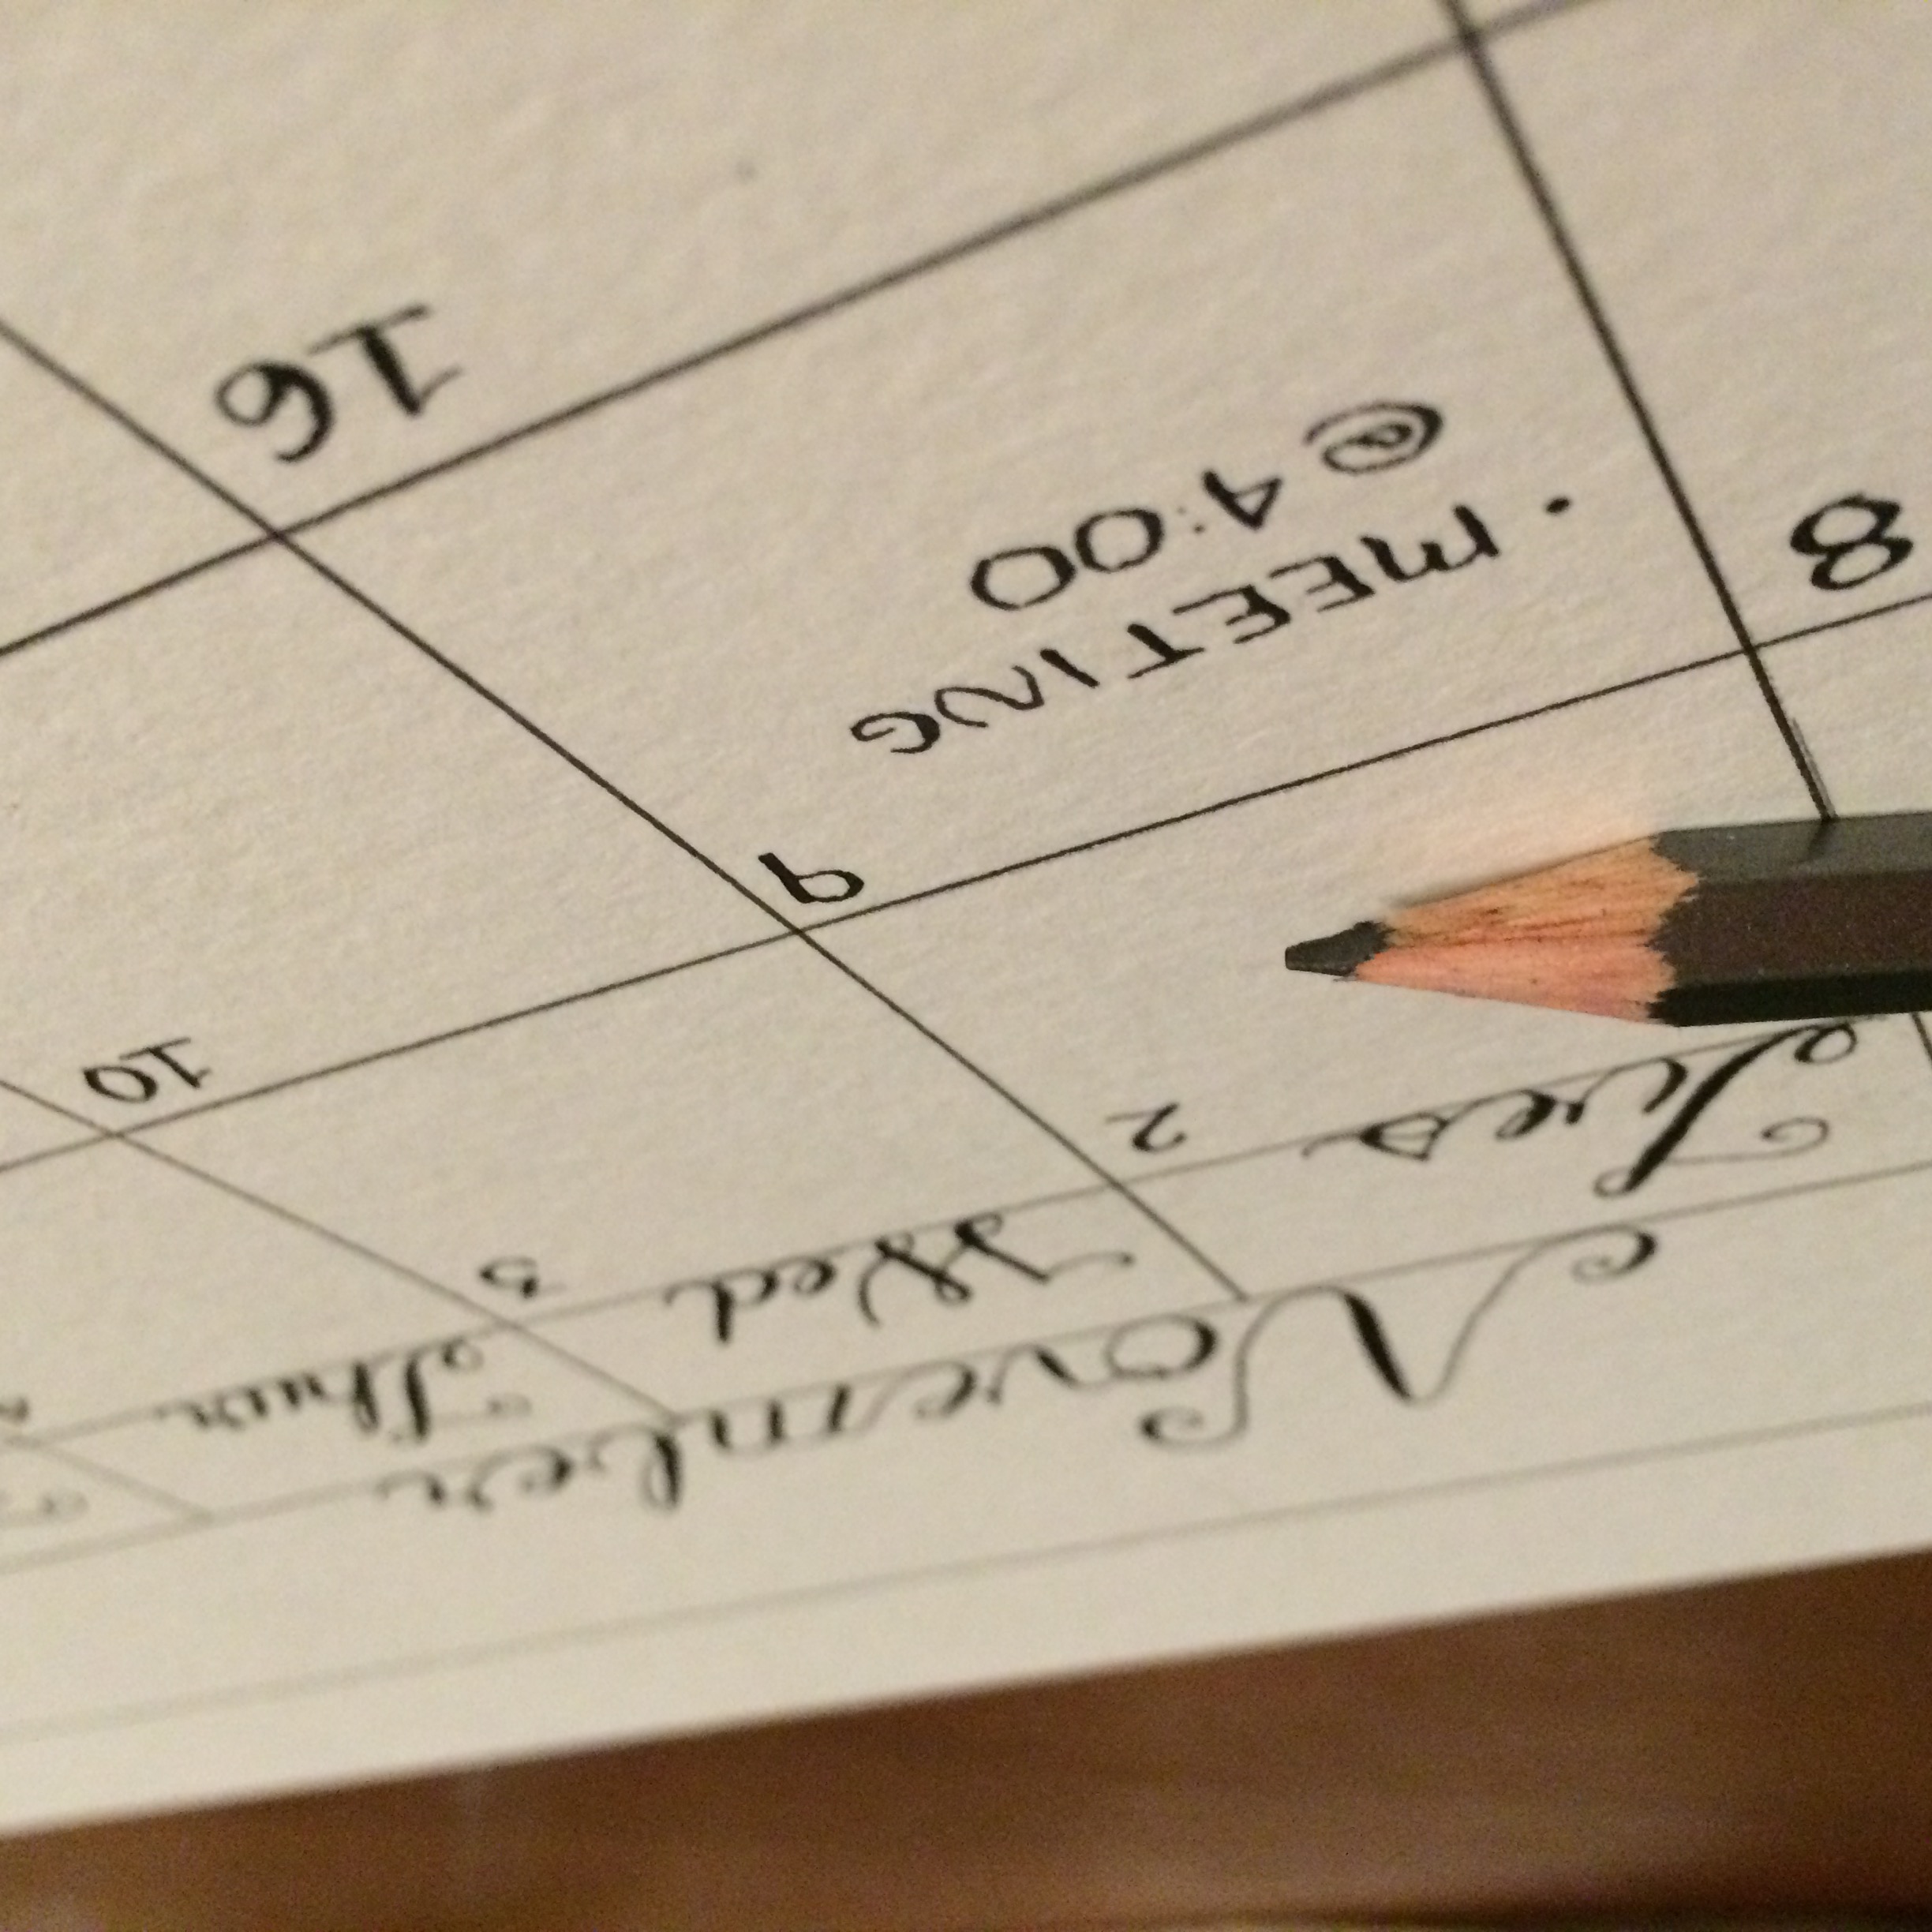 November
Tues Wed Thur
2 3
8 9 10
· MEETING
@ 4:00
16